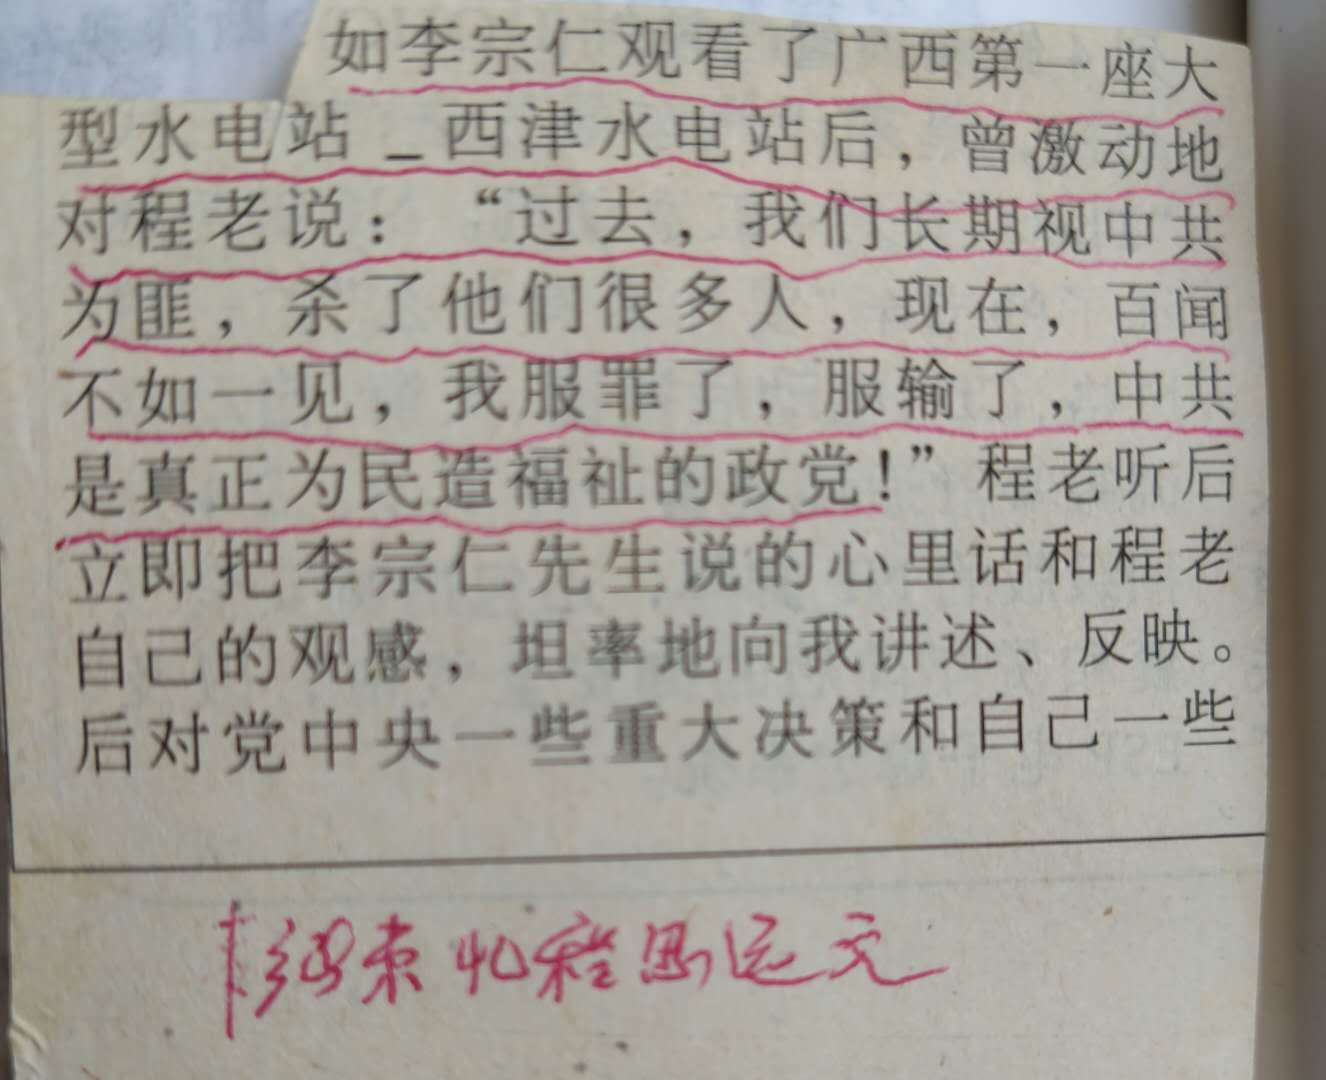 如李宗仁观看了广西第一座大
型水电站_西津水电站后，曾激动地
对程老说：“过去，我们长期视中共
为匪，杀了他们很多人，现在，百闻
不如一见，我服罪了，服输了，中共
是真正为民造福祉的政党！”程老听后
立即把李宗仁先生说的心里话和程老
自己的观感，坦率地向我讲述、反映。
后对党中央一些重大决策和自己一些
忆程思远文